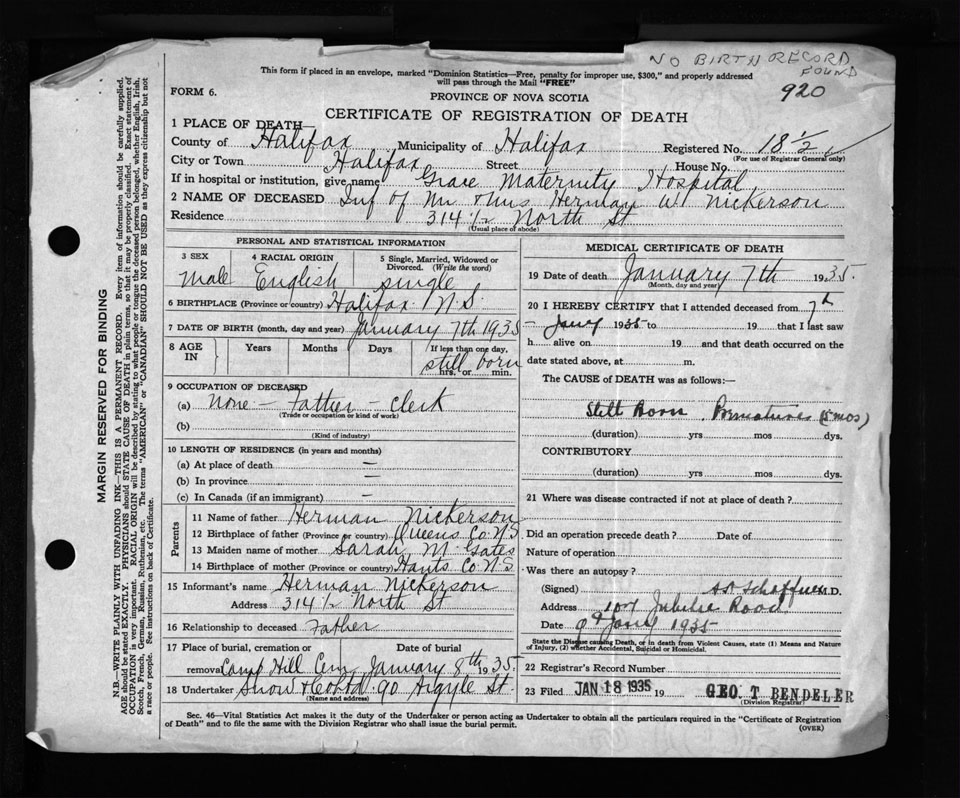 NO BIRTH RECORD
FOUND
920
This form if placed in an envelope, marked "Dominion Statistics—Free, penalty for improper use, $300," and properly addressed
will pass through the Mail "FREE"
FORM 6.
PROVINCE OF NOVA SCOTIA
CERTIFICATE OF REGISTRATION OF DEATH
1 PLACE OF DEATH—
County of Halifax Municipality of Halifax Registered No. 18 1/2
(For use of Registrar General only)
City or Town Halifax Street House No.
If in hospital or institution, give name Grace Maternity Hospital
2 NAME OF DECEASED Inf of Mr & Mrs Herman W. Nickerson
Residence 314 1/2 North St
(Usual place of abode)
PERSONAL AND STATISTICAL INFORMATION
3 SEX 4 RACIAL ORIGIN 5 Single, Married, Widowed or
Divorced. (Write the word)
Male English single
6 BIRTHPLACE (Province or country) Halifax N.S.
7 DATE OF BIRTH (month, day and year) January 7th 1935
8 AGE IN Years Months Days If less than one day,
still born
hrs. or min.
9 OCCUPATION OF DECEASED
(a) None — Father — Clerk
(Trade or occupation or kind of work)
(b)
(Kind of industry)
10 LENGTH OF RESIDENCE (in years and months)
(a) At place of death —
(b) In province —
(c) In Canada (if an immigrant) —
Parents
11 Name of father Herman Nickerson
12 Birthplace of father (Province or country) Queens Co N.S.
13 Maiden name of mother Sarah M. Gates
14 Birthplace of mother (Province or country) Hants Co N.S.
15 Informant's name Herman Nickerson
Address 314 1/2 North St
16 Relationship to deceased Father
17 Place of burial, cremation or Date of burial
removal Camp Hill Cem January 8th 1935
18 Undertaker Snow & Co Ltd. 90 Argyle St.
(Name and address)
MEDICAL CERTIFICATE OF DEATH
19 Date of death January 7th 1935
(Month, day and year)
20 I HEREBY CERTIFY that I attended deceased from 7th
Jany 1935 to 19 that I last saw
h alive on 19 and that death occurred on the
date stated above, at m.
The CAUSE of DEATH was as follows:—
Still Born Premature (5 mos)
(duration) yrs mos dys.
CONTRIBUTORY
(duration) yrs mos dys.
21 Where was disease contracted if not at place of death?
Did an operation precede death? Date of
Nature of operation
Was there an autopsy?
(Signed) Schaffner M.D.
Address 107 Jubilee Road
Date 9th Jany 1935
State the Disease causing Death, or in death from Violent Causes, state (1) Means and Nature
of Injury, (2) whether Accidental, Suicidal or Homicidal.
22 Registrar's Record Number
23 Filed JAN 18 1935 19 GEO. T BENDELER
(Division Registrar)
Sec. 46—Vital Statistics Act makes it the duty of the Undertaker or person acting as Undertaker to obtain all the particulars required in the "Certificate of Registration
of Death" and to file the same with the Division Registrar who shall issue the burial permit.
(OVER)
MARGIN RESERVED FOR BINDING
N.B.—WRITE PLAINLY WITH UNFADING INK—THIS IS A PERMANENT RECORD. Every item of information should be carefully supplied.
AGE should be stated EXACTLY. PHYSICIANS should STATE CAUSE OF DEATH in plain terms, so that it may be properly classified. Exact statement of
OCCUPATION is very important. RACIAL ORIGIN will be described by stating to what people or tongue the deceased person belonged, whether English, Irish,
Scotch, French, German, Russian, Ruthenian, etc. The terms "AMERICAN" or "CANADIAN" SHOULD NOT BE USED as they express citizenship but not
a race or people. See instructions on back of Certificate.